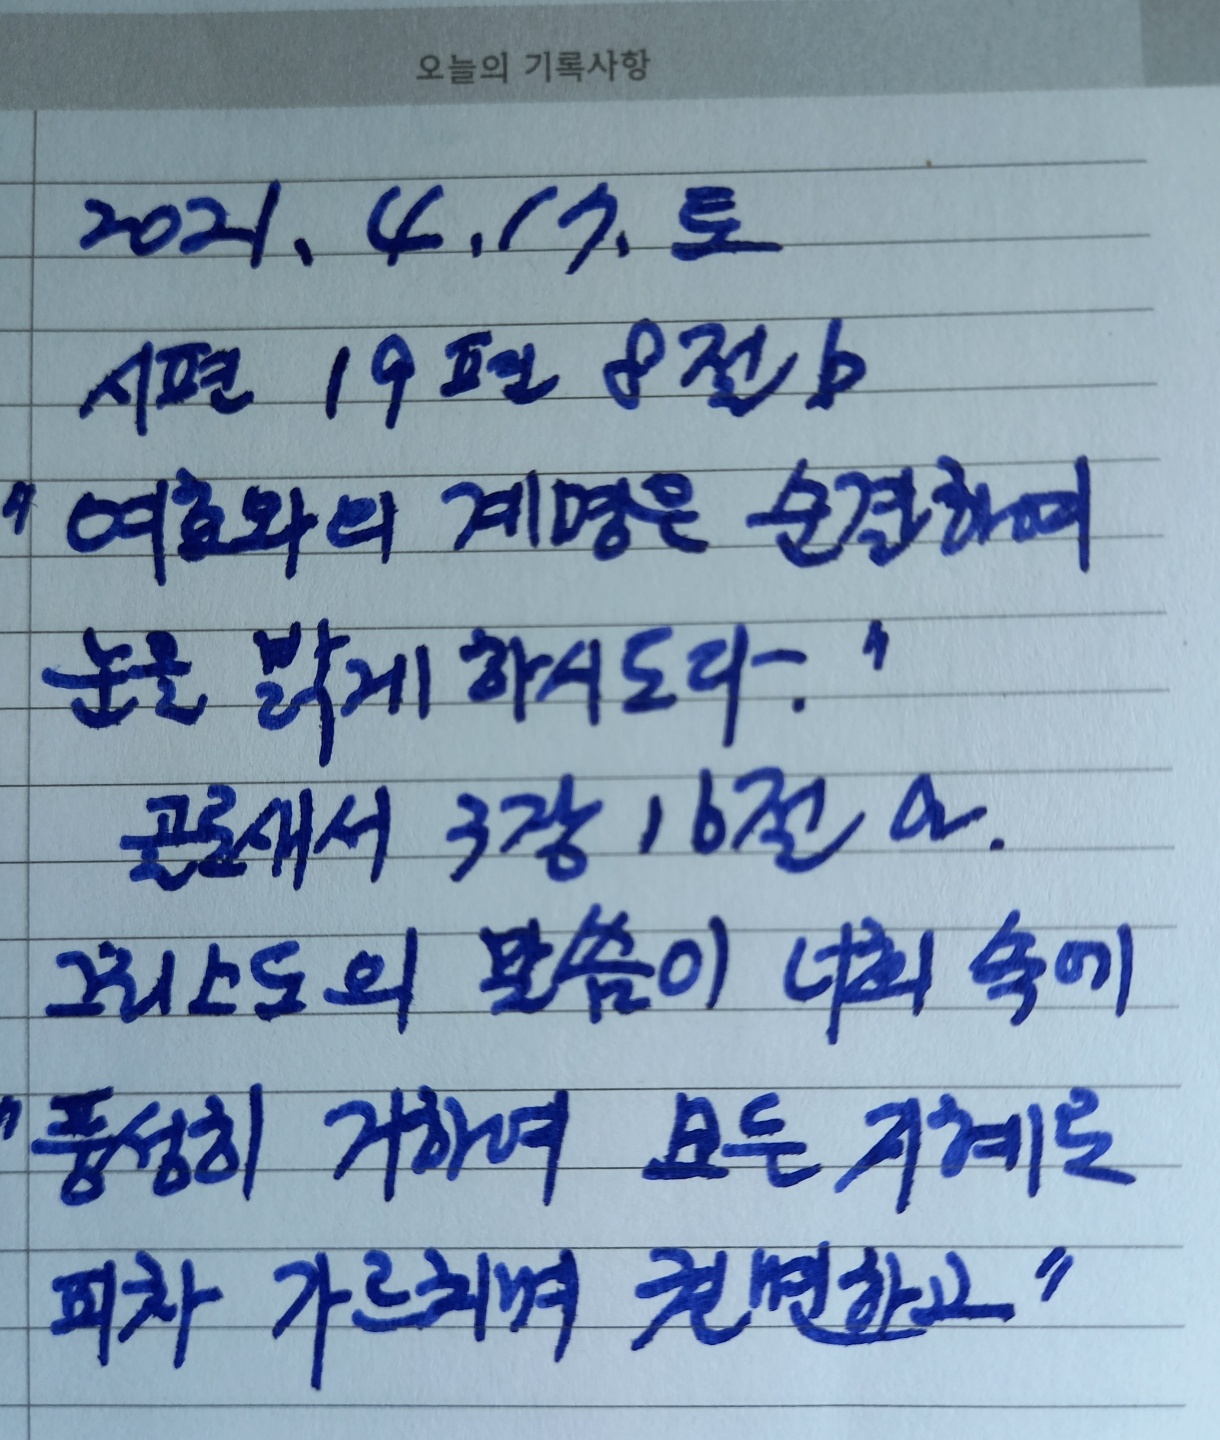 오늘의 기록사항
2021. 4. 17. 토
시편 19편 8절 b
"여호와의 계명은 순결하여
눈을 밝게 하시도다. "
골로새서 3장 16절 a.
그리스도의 말씀이 너희 속에
"풍성히 거하여 모든 지혜로
피차 가르치며 권면하고"